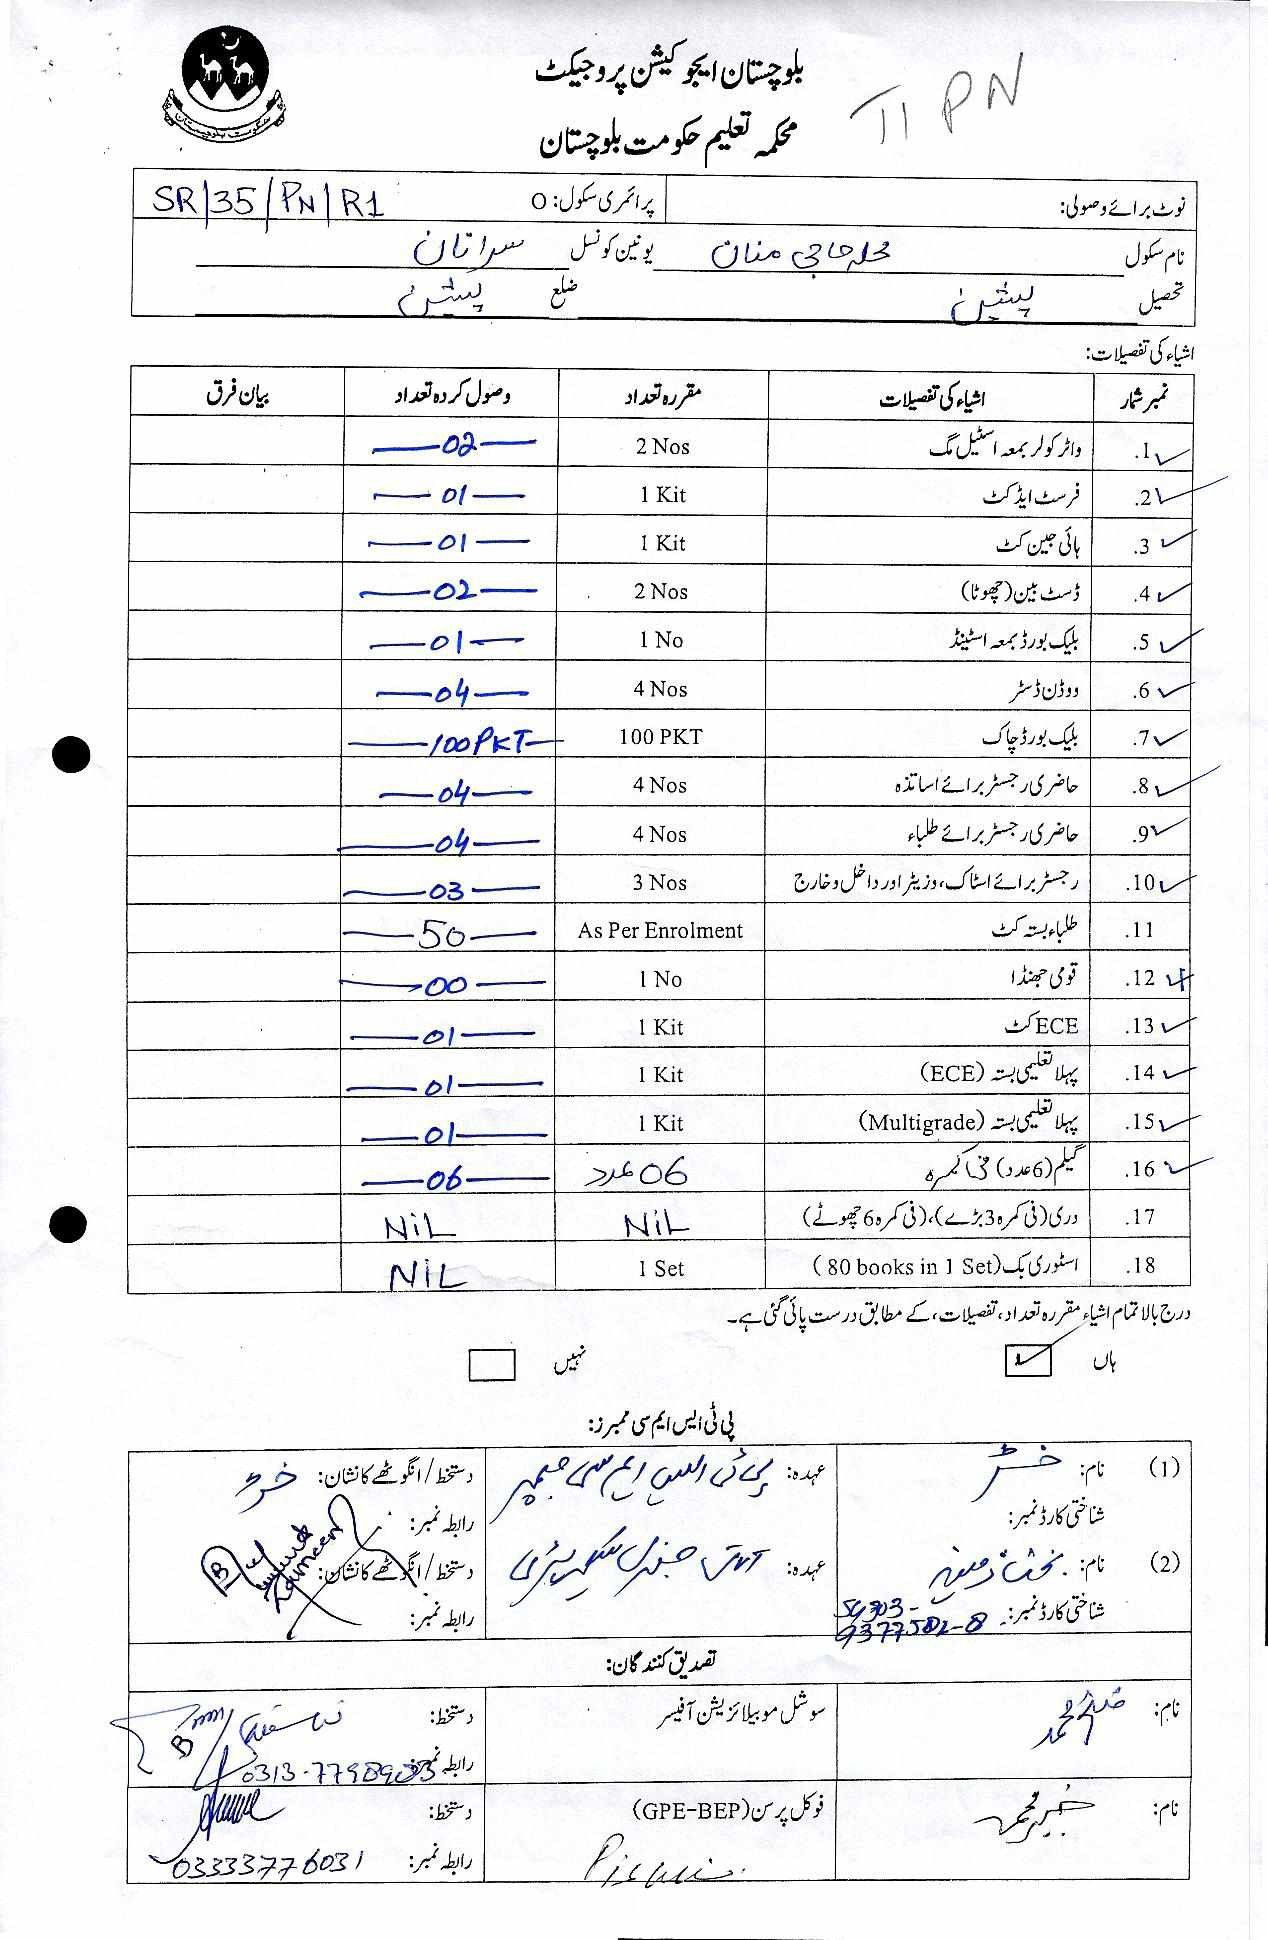 حکومت بلوچستان
بلوچستان ایجوکیشن پروجیکٹ
TI PN
محکمہ تعلیم حکومت بلوچستان
نوٹ برائے وصولی: پرائمری سکول: O SR/35/PN/R1
نام سکول محلہ حاجی منان یونین کونسل سرانان
تحصیل پشین ضلع پشین
اشیاء کی تفصیلات:
نمبر شمار اشیاء کی تفصیلات مقررہ تعداد وصول کردہ تعداد بیان فرق
1. واٹر کولر بمعہ اسٹیل مگ 2 Nos 02
2. فرسٹ ایڈ کٹ 1 Kit 01
3. ہائی جین کٹ 1 Kit 01
4. ڈسٹ بین (چھوٹا) 2 Nos 02
5. بلیک بورڈ بمعہ اسٹینڈ 1 No 01
6. ووڈن ڈسٹر 4 Nos 04
7. بلیک بورڈ چاک 100 PKT 100 PKT
8. حاضری رجسٹر برائے اساتذہ 4 Nos 04
9. حاضری رجسٹر برائے طلباء 4 Nos 04
10. رجسٹر برائے اسٹاک، وزیٹر اور داخل و خارج 3 Nos 03
11. طلباء بستہ کٹ As Per Enrolment 50
12. قومی جھنڈا 1 No 00
13. ECE کٹ 1 Kit 01
14. پہلا تعلیمی بستہ (ECE) 1 Kit 01
15. پہلا تعلیمی بستہ (Multigrade) 1 Kit 01
16. گیلم (6 عدد) فی کمرہ 06 عدد 06
17. دری (فی کمرہ 3 بڑے)، (فی کمرہ 6 چھوٹے) NiL NiL
18. اسٹوری بک (80 books in 1 Set) 1 Set NiL
درج بالا تمام اشیاء مقررہ تعداد، تفصیلات، کے مطابق درست پائی گئی ہے۔
ہاں نہیں
پی ٹی ایس ایم سی ممبرز:
(1) نام: عہدہ: پی ٹی ایس ایم سی دستخط/انگوٹھے کا نشان:
شناختی کارڈ نمبر: رابطہ نمبر:
(2) نام: بخت زمینہ عہدہ: جنرل سیکریٹری دستخط/انگوٹھے کا نشان:
شناختی کارڈ نمبر: 54303- رابطہ نمبر:
تصدیق کنندگان:
نام: سوشل موبیلائزیشن آفیسر دستخط:
رابطہ نمبر:
نام: فوکل پرسن (GPE-BEP) دستخط:
رابطہ نمبر: 03333776031